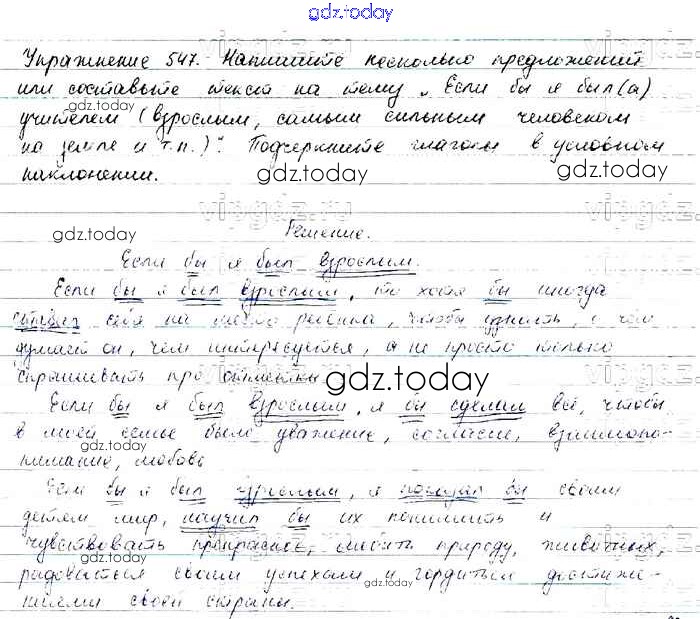 gdz.today
Упражнение 547. Напишите несколько предложений
или составьте текст на тему „Если бы я был(а)
gdz.today
учителем (взрослым, самым сильным человеком
на земле и т.п.)“. Подчеркните глаголы в условном
gdz.today gdz.today
наклонении.
vipgdz.ru vipgdz.ru
gdz.today
Решение.
Если бы я был взрослым.
Если бы я был взрослым, то хотя бы иногда
ставил себя на место ребёнка, чтобы узнать, о чём
думает он, чем интересуется, а не просто только
спрашивать про отметки.
gdz.today
Если бы я был взрослым, я бы сделал всё, чтобы
в моей семье было уважение, согласие, взаимопо-
нимание, любовь
Если бы я был взрослым, я показал бы своим
детям мир, научил бы их понимать и
чувствовать прекрасное, любить природу, животных,
радоваться своим успехам и гордиться достиже-
gdz.today
ниями своей страны.